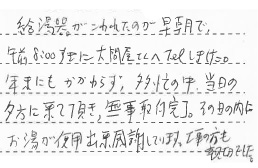 給湯器がこわれたのが早朝で、
午前8:00すぎに大問屋さんへTelしました。
年末にもかかわらず、多忙の中、当日の
夕方に来て頂き、無事取付完了。その日の内に
お湯が使用出来感謝しています。工事の方も
親切でした。